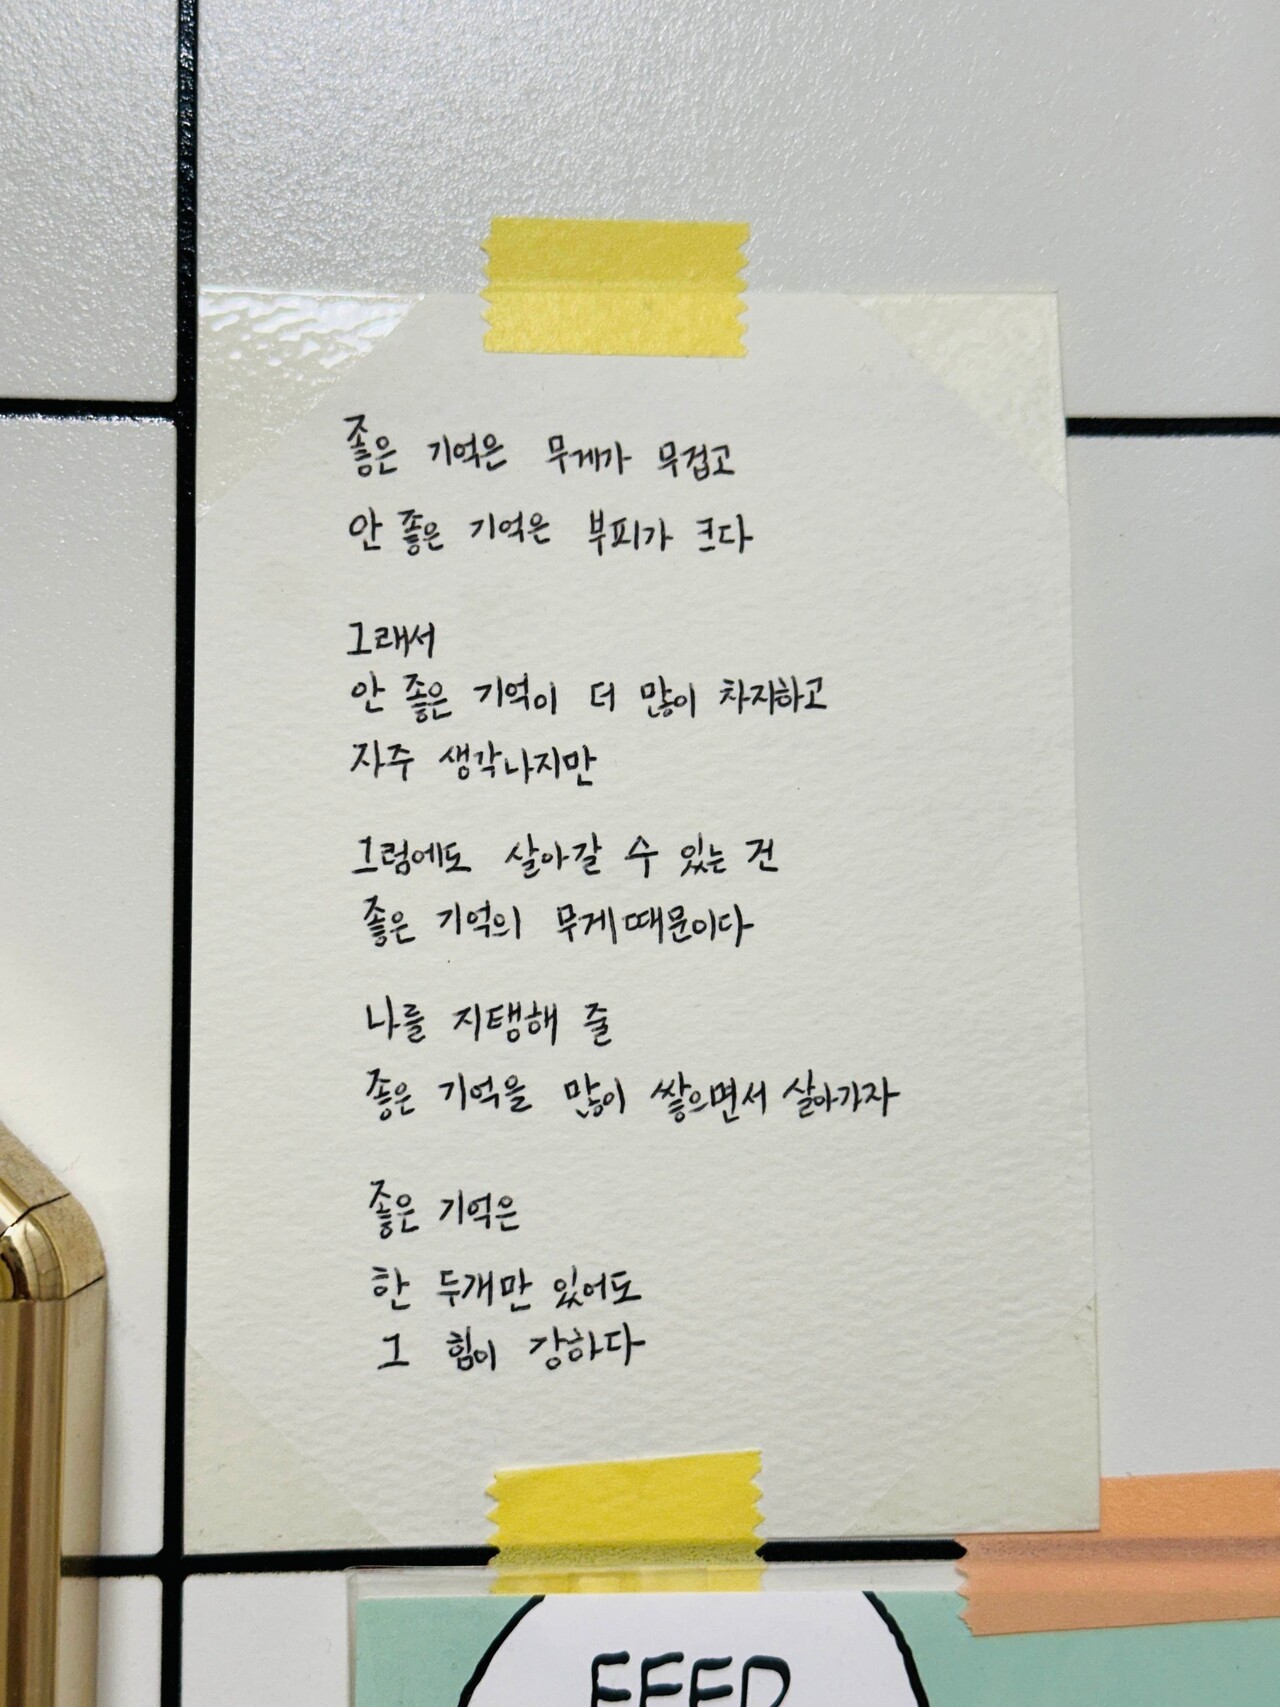 좋은 기억은 무게가 무겁고
안 좋은 기억은 부피가 크다
그래서
안 좋은 기억이 더 많이 차지하고
자주 생각나지만
그럼에도 살아갈 수 있는 건
좋은 기억의 무게때문이다
나를 지탱해 줄
좋은 기억을 많이 쌓으면서 살아가자
좋은 기억은
한 두개만 있어도
그 힘이 강하다
FEED